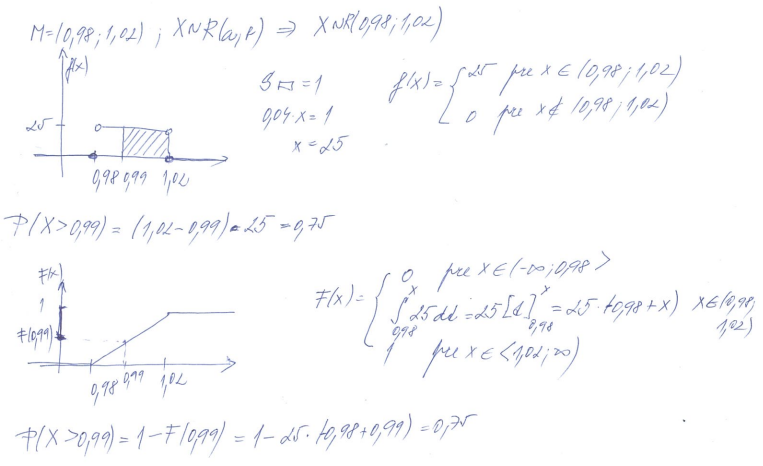 M=(0,98;1,02) ; X~R(a,b) ⇒ X~R(0,98;1,02)
f(x)
25
0,98 0,99 1,02
S▭=1
0,04·x=1
x=25
f(x)={ 25 pre x∈(0,98;1,02)
0 pre x∉(0,98;1,02)
P(X>0,99)=(1,02-0,99)·25=0,75
F(x)
1
F(0,99)
0,98 0,99 1,02
F(x)={ 0 pre x∈(-∞;0,98>
∫0,98^x 25dt=25[t]0,98^x=25·(-0,98+x) x∈(0,98;1,02)
1 pre x∈<1,02;∞)
P(X>0,99)=1-F(0,99)=1-25·(-0,98+0,99)=0,75